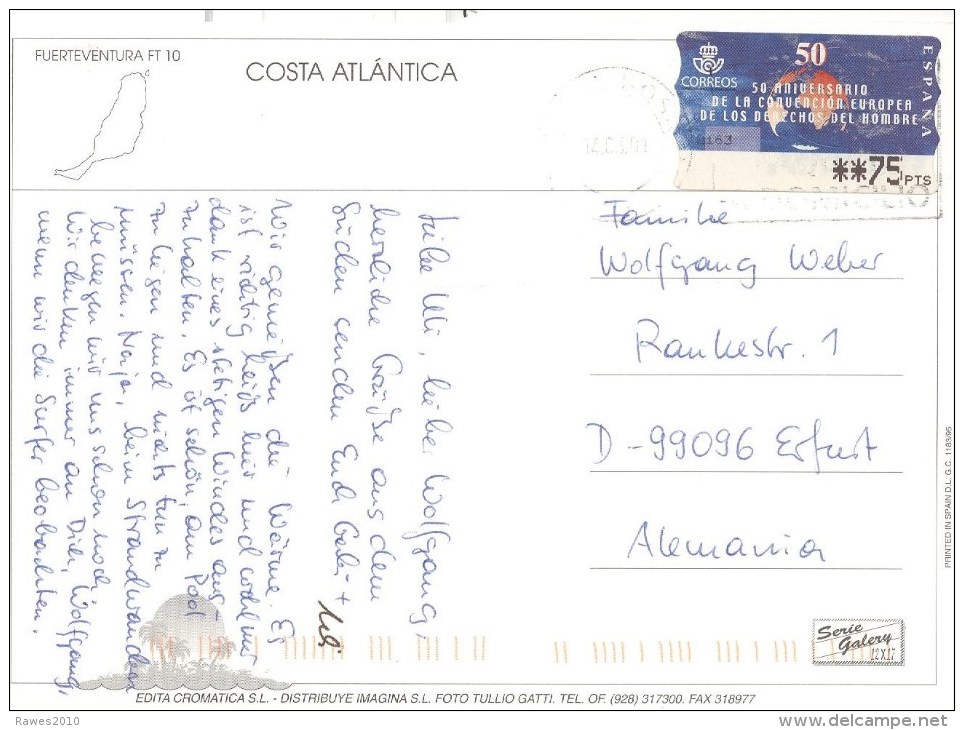 FUERTEVENTURA FT 10
COSTA ATLÁNTICA
CORREOS
50
50 ANIVERSARIO
DE LA CONVENCIÓN EUROPEA
DE LOS DERECHOS DEL HOMBRE
ESPAÑA
**75 PTS
Liebe Uli, lieber Wolfgang,
herzliche Grüße aus dem
Süden senden Euch Gabi +
Wir genießen die Wärme. Es
ist richtig heiß hier und
dank eines stetigen Windes aus-
zuhalten. Es ist schön, am Pool
zu liegen und nichts tun zu
müssen. Naja, beim Strandwandern
bewegen wir uns schon noch.
Wir denken immer an Dich, Wolfgang,
wenn wir die Surfer beobachten.
Familie
Wolfgang Weber
Rankestr. 1
D-99096 Erfurt
Alemania
PRINTED IN SPAIN D.L. G.C. 1183/95
Serie
Galery
12X17
EDITA CROMATICA S.L. - DISTRIBUYE IMAGINA S.L. FOTO TULLIO GATTI. TEL. OF. (928) 317300. FAX 318977
Rawes2010
delcampe.net